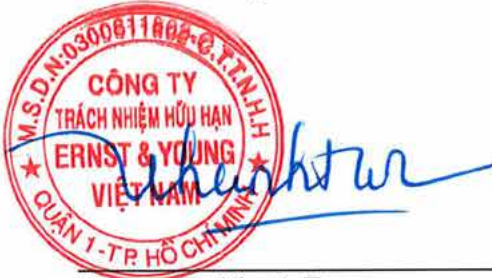 M.S.D.N:0300811802-C.T.T.N.H.H
CÔNG TY
TRÁCH NHIỆM HỮU HẠN
ERNST & YOUNG
VIỆT NAM
QUẬN 1-T.P. HỒ CHÍ MINH